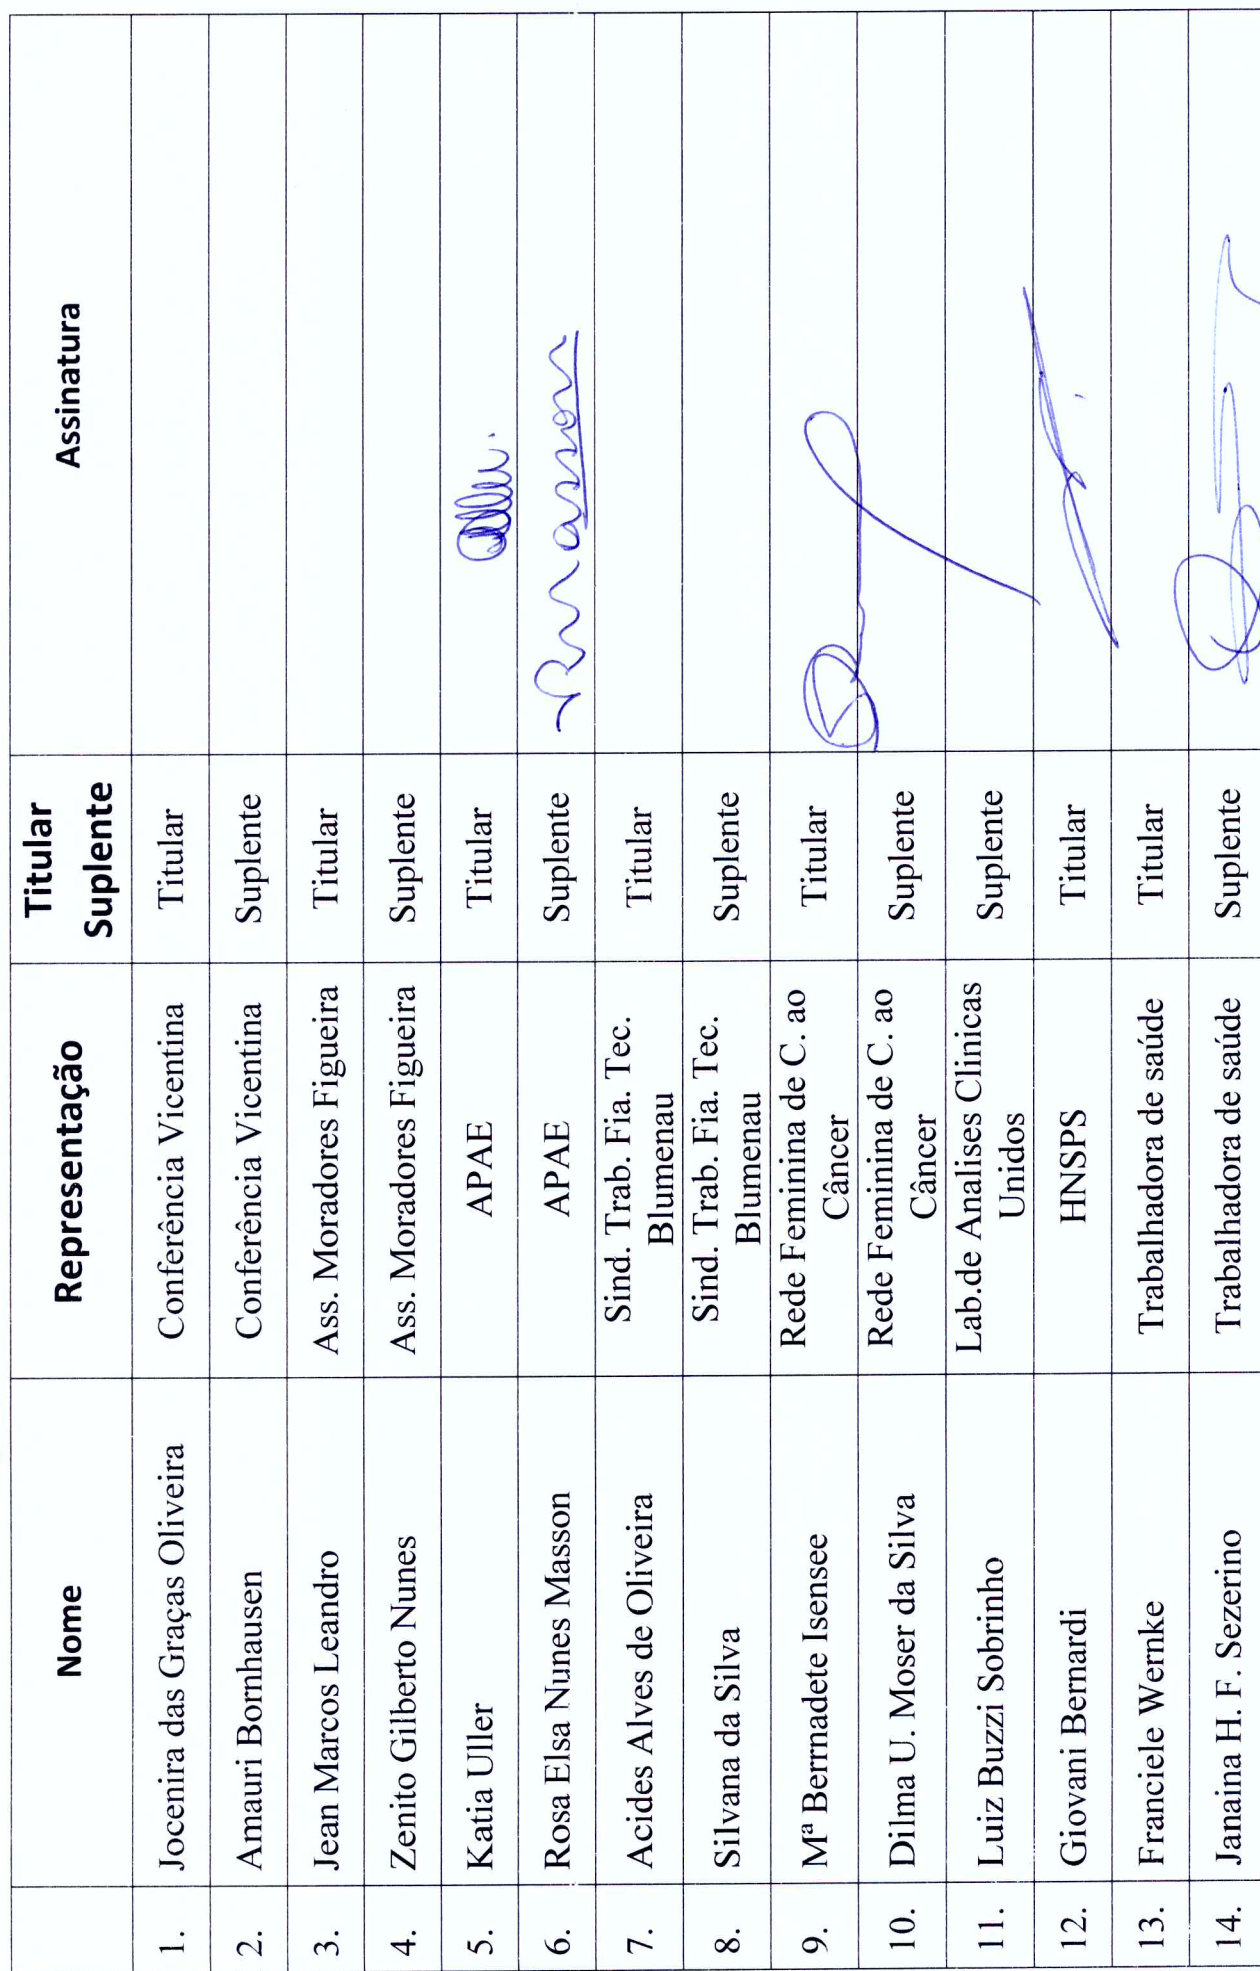 Nome Representação Titular Suplente Assinatura
1. Jocenira das Graças Oliveira Conferência Vicentina Titular
2. Amauri Bornhausen Conferência Vicentina Suplente
3. Jean Marcos Leandro Ass. Moradores Figueira Titular
4. Zenito Gilberto Nunes Ass. Moradores Figueira Suplente
5. Katia Uller APAE Titular
6. Rosa Elsa Nunes Masson APAE Suplente
7. Acides Alves de Oliveira Sind. Trab. Fia. Tec. Blumenau Titular
8. Silvana da Silva Sind. Trab. Fia. Tec. Blumenau Suplente
9. Mª Bernadete Isensee Rede Feminina de C. ao Câncer Titular
10. Dilma U. Moser da Silva Rede Feminina de C. ao Câncer Suplente
11. Luiz Buzzi Sobrinho Lab.de Analises Clinicas Unidos Suplente
12. Giovani Bernardi HNSPS Titular
13. Franciele Wernke Trabalhadora de saúde Titular
14. Janaina H. F. Sezerino Trabalhadora de saúde Suplente